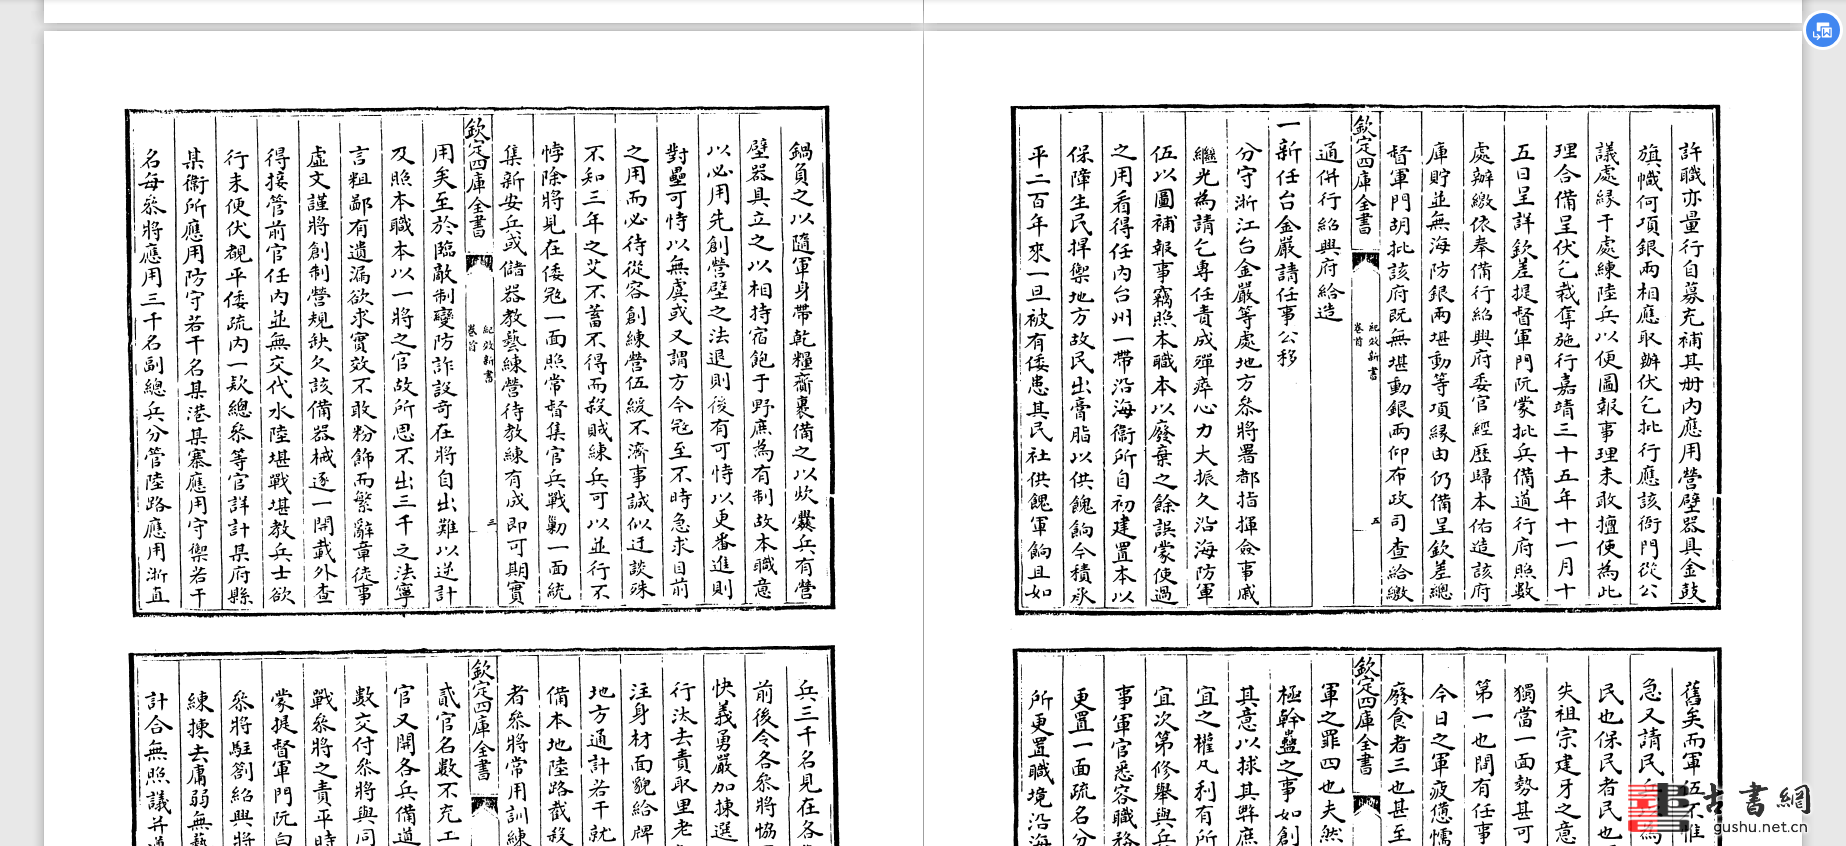 鍋負之以隨軍身帶乾糧齎裹備之以炊爨兵有營
壁器具立之以相持宿飽于野庶為有制故本職意
以必用先創營壁之法退則後有可恃以更番進則
對壘可恃以無虞或又謂方今冦至不時急求目前
之用而必待從容創練營伍緩不濟事誠似迂談殊
不知三年之艾不蓄不得而殺賊練兵可以並行不
悖除將見在倭冦一面照常督集官兵戰勦一面統
集新安兵或儲器教藝練營待教練有成即可期實
欽定四庫全書
紀效新書
卷首
三
用矣至於臨敵制變防詐設奇在將自出難以逆計
及照本職本以一將之官故所思不出三千之法寧
言粗鄙有遺漏欲求實效不敢粉飾而繁辭章徒事
虛文謹將創制營規缺欠該備器械逐一開載外查
得接管前官任内並無交代水陸堪戰堪教兵士欲
行未便伏覩平倭疏内一欵總叅等官詳計某府縣
某衛所應用防守若干名某港某寨應用守禦若干
名每叅將應用三千名副總兵分管陸路應用浙直
兵三千名見在各
前後令各叅將協
快義勇嚴加揀選
行汰去責取里老
注身材面貌給牌
地方通計若干就
備本地陸路截殺
者叅將常用訓練
欽定四庫全書
貳官名數不充工
官又開各兵備道
數交付叅將與同
戰叅將之責平時
蒙提督軍門阮白
叅將駐劄紹興將
練揀去庸弱無藝
計合無照議并
許職亦量行自募充補其册内應用營壁器具金鼓
旗幟何項銀兩相應取辦伏乞批行應該衙門從公
議處緣干處練陸兵以便圖報事理未敢擅使為此
理合備呈伏乞裁奪施行嘉靖三十五年十一月十
五日呈詳欽差提督軍門阮蒙批兵備道行府照數
處辦繳依奉備行紹興府委官經歷歸本佑造該府
庫貯並無海防銀兩堪動等項緣由仍備呈欽差總
督軍門胡批該府既無堪動銀兩仰布政司查給繳
欽定四庫全書
紀效新書
卷首
五
通併行紹興府給造
一新任台金嚴請任事公移
分守浙江台金嚴等處地方叅將署都指揮僉事戚
繼光為請乞專任責成殫瘁心力大振久沿海防軍
伍以圖補報事竊照本職本以廢棄之餘誤蒙使過
之用看得任内台州一帶沿海衞所自初建置本以
保障生民捍禦地方故民出膏脂以供餽餉今積承
平二百年來一旦被有倭患其民社供餽軍餉且如
舊矣而軍伍不惟
急又請民兵為
民也保民者民也
失祖宗建牙之意
獨當一面勢甚可
第一也間有任事
今日之軍疲憊懦
廢食者三也甚至
欽定四庫全書
軍之罪四也夫然
極幹蠱之事如創
其意以捄其弊庶
宜之權凡利有所
宜次第修舉與兵
事軍官悉容職務
更置一面疏名分
所更置職境沿海
古書網
gushu.net.cn